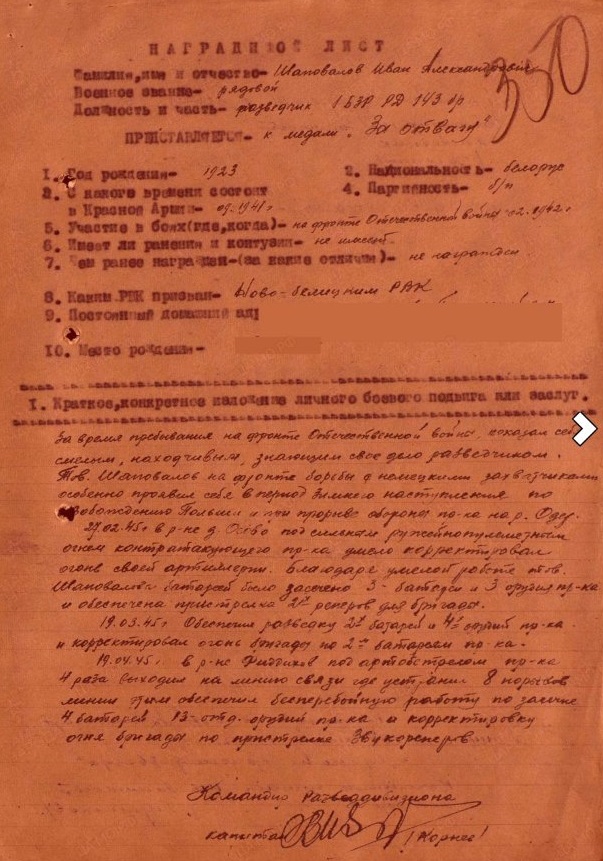 350
НАГРАДНОЙ ЛИСТ
Фамилия,имя и отчество- Шаповалов Иван Александрович
Военное звание- рядовой
Должность и часть- разведчик РД 143
ПРЕДСТАВЛЯЕТСЯ- к медали "За отвагу"
1. Год рождения- 1923
2. Национальность- белорус
3. С какого времени состоит
в Красной Армии- 09.1941г
4. Партийность- б/п
5. Участие в боях(где,когда)- на фронте Отечественной войны с 2.1942.г
6. Имеет ли ранения и контузии- не имеет
7. Чем ранее награжден-(за какие отличия)- не награжден
8. Каким РВК призван- Ново-Белицким РВК
9. Постоянный домашний адр
10. Место рождения-
I. Краткое,конкретное изложение личного боевого подвига или заслуг.
За время пребывания на фронте Отечественной войны, показал себя
смелым, находчивым, знающим свое дело разведчиком.
Тов. Шаповалов на фронте борьбы с немецкими захватчиками
особенно проявил себя в период Зимнего наступления по
освобождению Польши и при прорыве обороны пр-ка на р. Одер.
27.02.45г в р-не д. под сильным ружейнопулеметным
огнем контратакующего пр-ка умело корректировал
огонь своей артиллерии. Благодаря умелой работе тов.
Шаповалова батареей было засечено 3- батареи и 3 орудия пр-ка
и обеспечена пристрелка 2х реперов для бригады.
19.03.45г Обеспечил разведку 2х батарей и 4х орудий пр-ка
и корректировал огонь бригады по 2м батареям пр-ка.
19.04.45г. в р-не под артобстрелом пр-ка
4 раза выходил на линию связи где устранил 8 порывов
линии этим обеспечил бесперебойную работу по засечке
4 батарей 13-отд. орудий пр-ка и корректировку
огня бригады по пристрелке Звукореперов
Командир Разведдивизиона
капитан /Корнев/